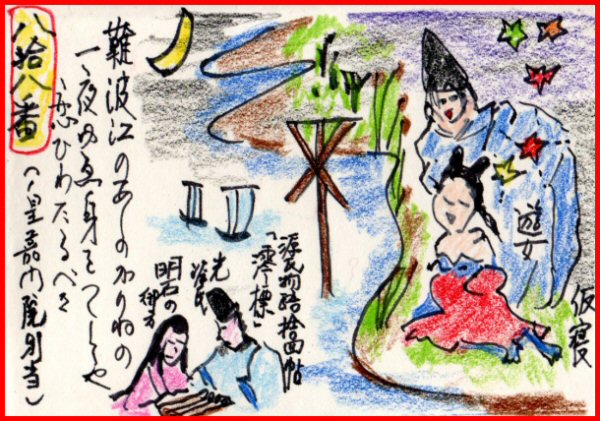 八拾八番
難波江のあしのかりねの
一夜ゆゑ身をつくしや
恋ひわたるべき
(皇嘉門院別当)
源氏物語拾四帖
「澪標」
光源氏
明石の
御方
遊女
仮寝